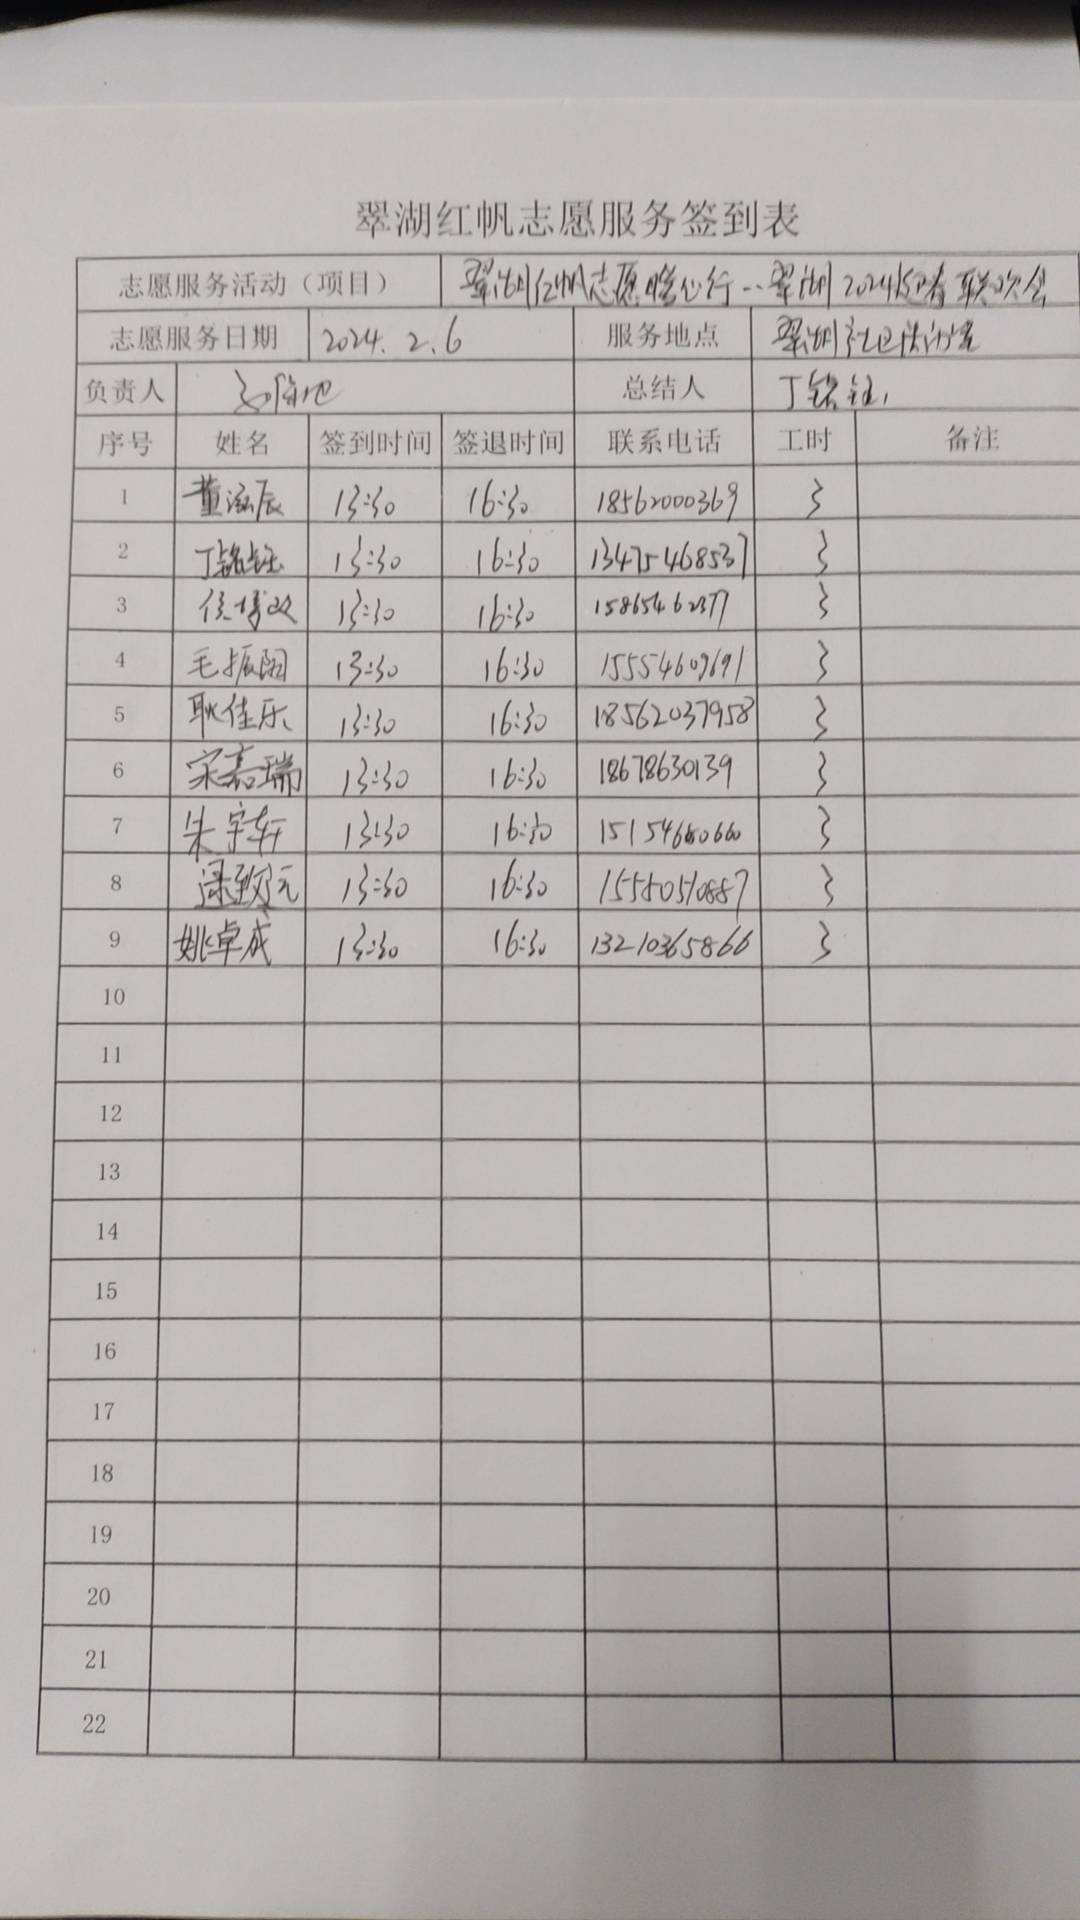 翠湖红帆志愿服务签到表
志愿服务活动（项目） 翠湖红帆志愿暖心行--翠湖2024迎春联欢会
志愿服务日期 2024.2.6 服务地点 翠湖社区活动室
负责人 总结人 丁铭钰
序号 姓名 签到时间 签退时间 联系电话 工时 备注
1 董泓辰 13:30 16:30 18562000369 3
2 丁铭钰 13:30 16:30 13475468537 3
3 侯博文 13:30 16:30 15865462377 3
4 毛振阁 13:30 16:30 15554609691 3
5 耿佳乐 13:30 16:30 18562037958 3
6 宋嘉瑞 13:30 16:30 18678630139 3
7 朱宇轩 13:30 16:30 15154660660 3
8 13:30 16:30 15580510887 3
9 姚卓成 13:30 16:30 13210365866 3
10
11
12
13
14
15
16
17
18
19
20
21
22